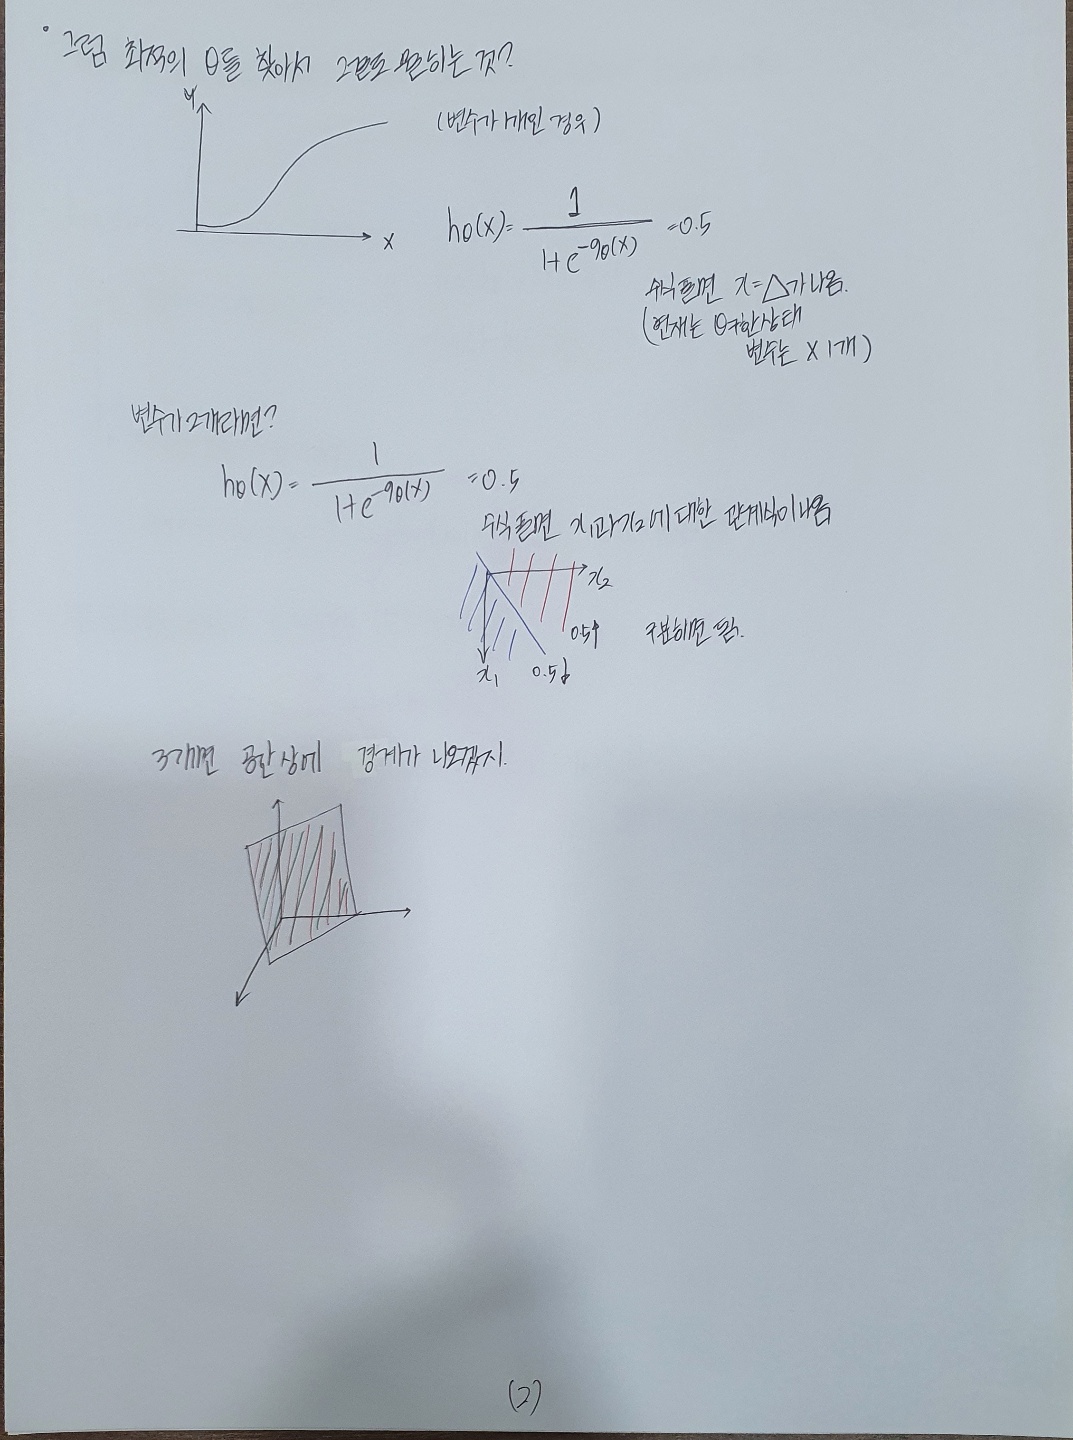 · 그럼 최적의 θ를 찾아서 구분하는 것?
y
(변수가 1개인 경우)
x
hθ(x)= 1/(1+e^-gθ(x)) =0.5
수식풀면 x=△가 나옴.
(현재는 θ구한상태
변수는 x 1개)
변수가 2개라면?
hθ(x)= 1/(1+e^-gθ(x)) =0.5
수식 풀면 x1과 x2에 대한 관계식이 나옴
x2
0.5↑ 구분하면 됨.
x1 0.5↓
3개면 공간상에 경계가 나오겠지.
(2)